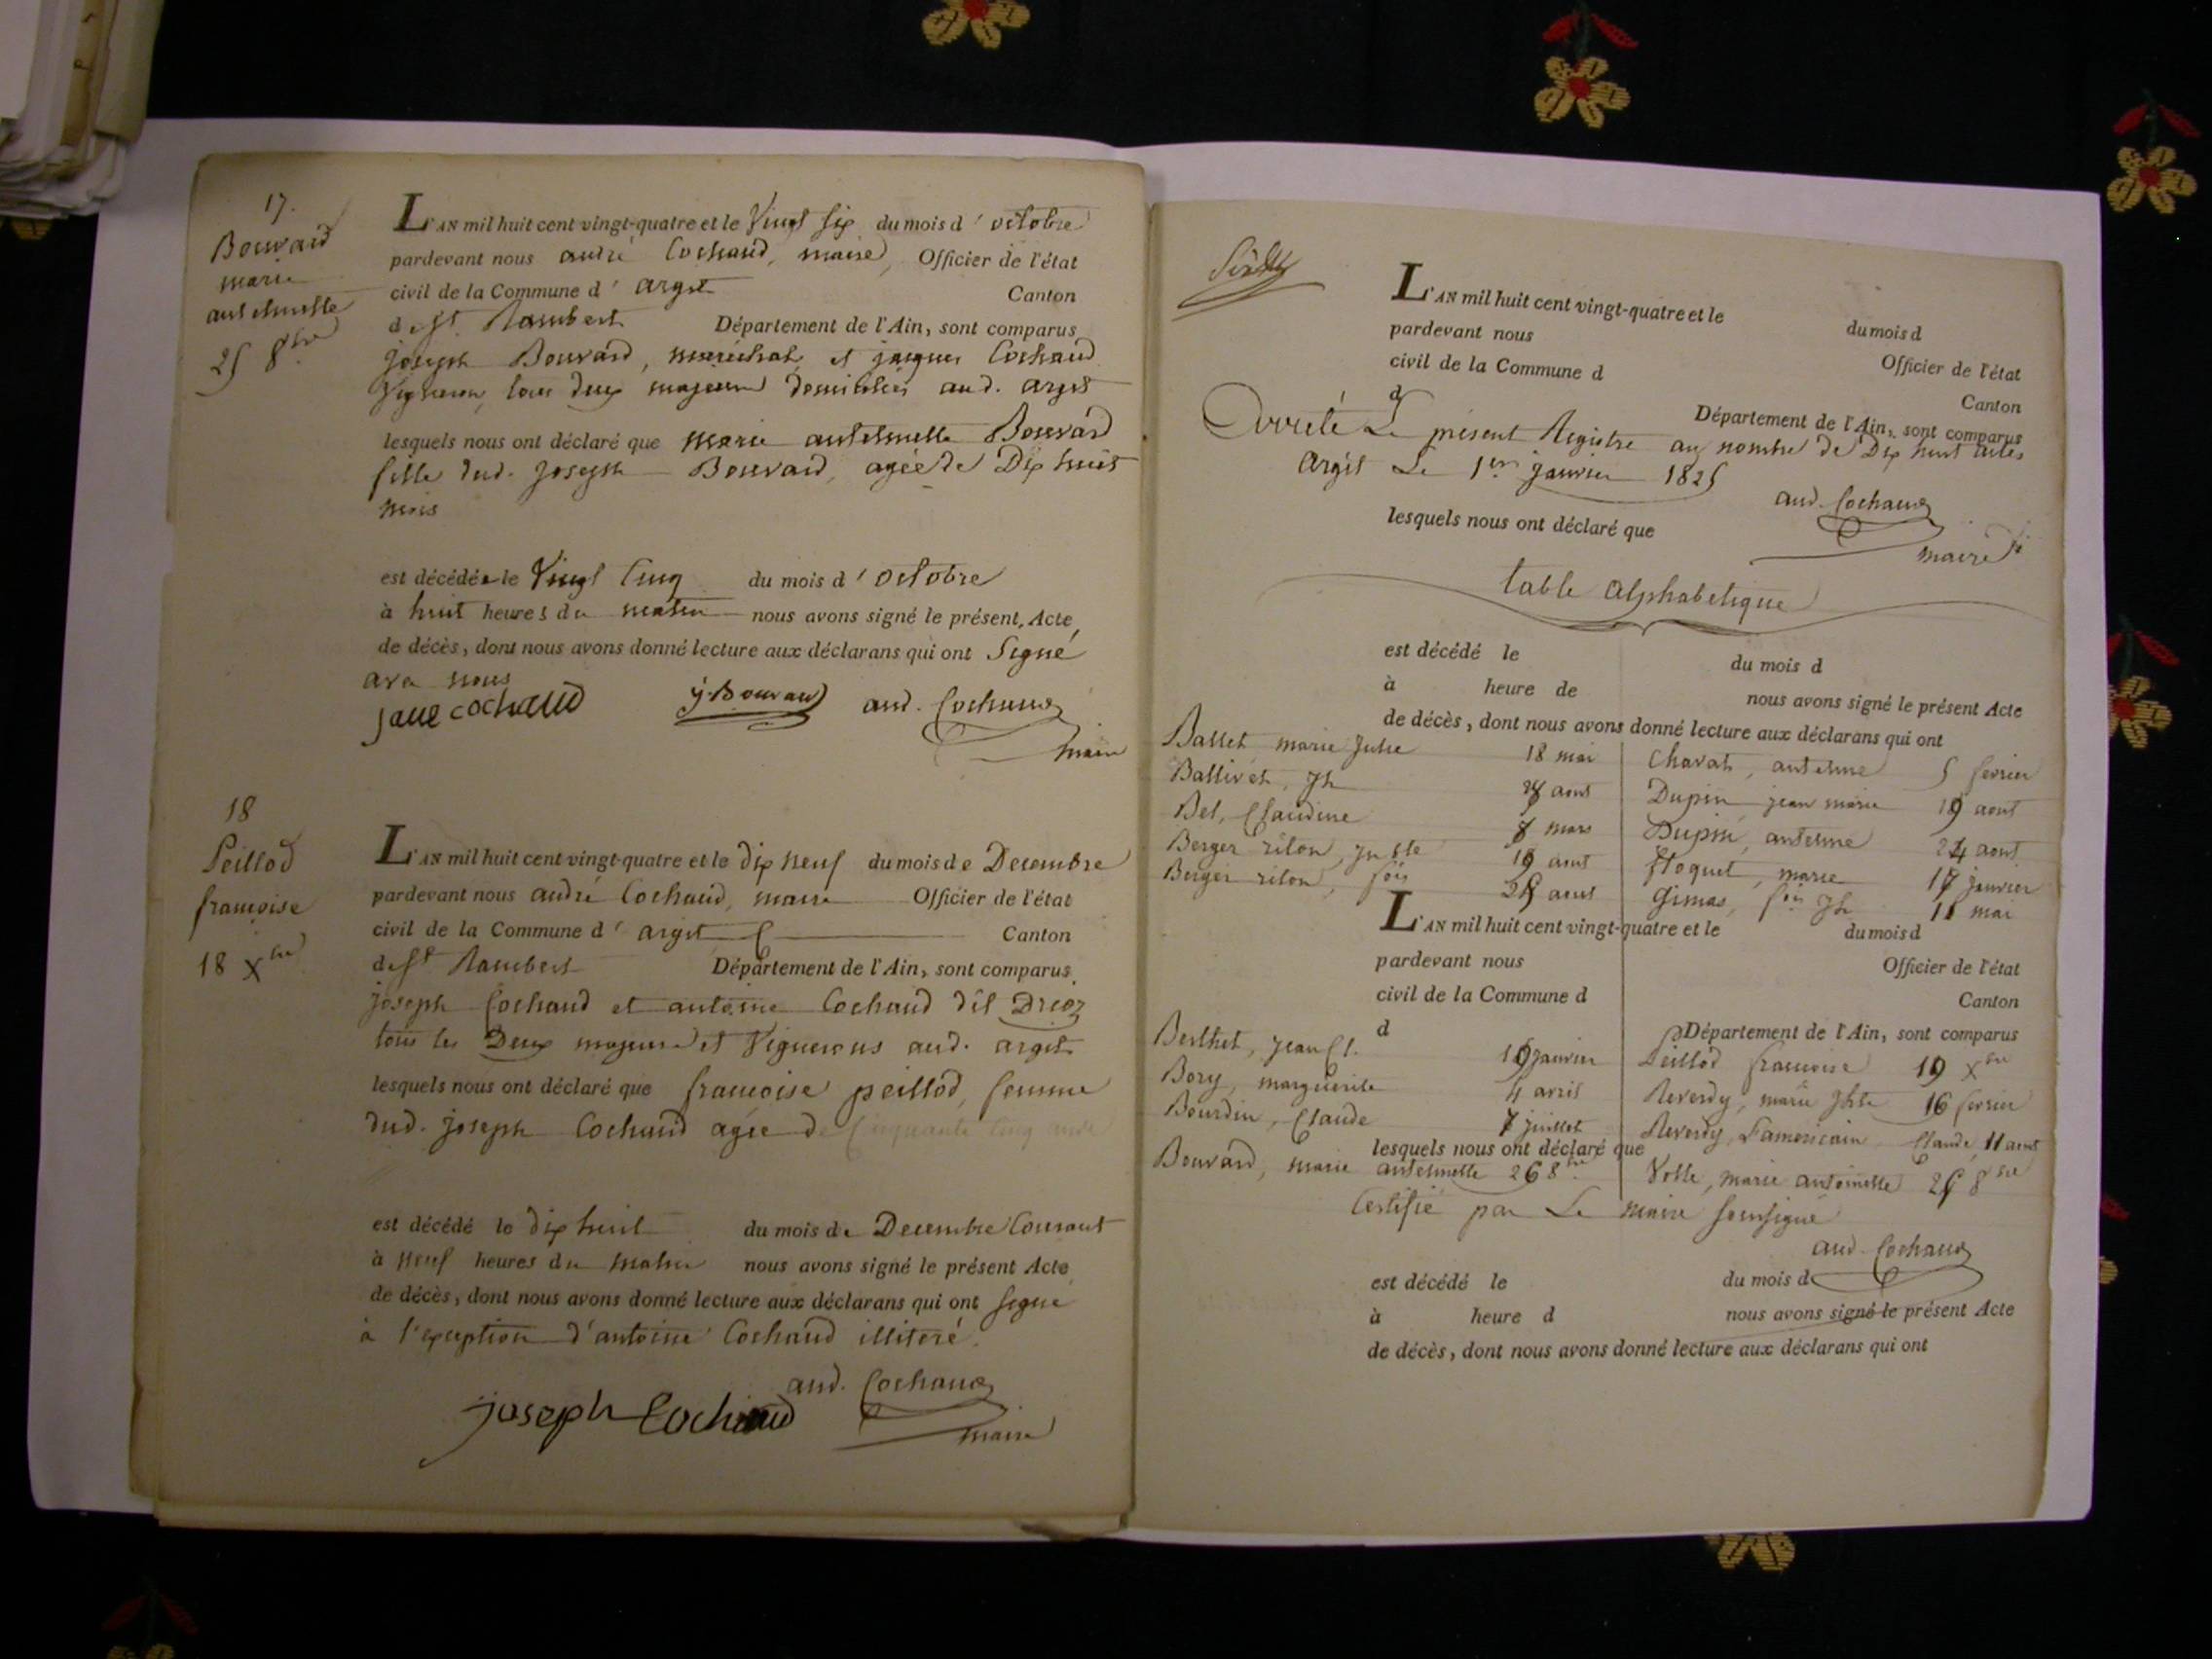 17.
Bouvard
marie
anthelmette
25 8bre
L'AN mil huit cent vingt-quatre et le Vingt six du mois d'octobre
pardevant nous andré Cochaud, maire, Officier de l'état
civil de la Commune d'argit Canton
de St Rambert Département de l'Ain, sont comparus
joseph Bouvard, maréchal, et jacques Cochaud
Vigneron, tous deux majeurs domiciliés aud. argit
lesquels nous ont déclaré que marie anthelmette Bouvard
fille dud. joseph Bouvard, agée de Dix huit
mois
est décédée le Vingt Cinq du mois d'octobre
à huit heures du matin nous avons signé le présent Acte
de décès, dont nous avons donné lecture aux déclarans qui ont Signé
avec nous
jaque cochaud j. Bouvard and. Cochaud
maire
18
Peillod
francoise
18 Xbre
L'AN mil huit cent vingt-quatre et le dix neuf du mois de Decembre
pardevant nous andré Cochaud, maire Officier de l'état
civil de la Commune d'argit Canton
de St Rambert Département de l'Ain, sont comparus
joseph Cochaud et antoine Cochaud dit
tous les Deux majeurs et Vignerons aud. argit
lesquels nous ont déclaré que francoise peillod, femme
dud. joseph Cochaud agée de Cinquante Cinq ans
est décédé le dix huit du mois de Decembre Courant
à neuf heures du matin nous avons signé le présent Acte
de décès, dont nous avons donné lecture aux déclarans qui ont signé
à l'exception d'antoine Cochaud illiteré.
and. Cochaud
joseph Cochaud
maire
L'AN mil huit cent vingt-quatre et le du mois d
pardevant nous Officier de l'état
civil de la Commune d Canton
d Département de l'Ain, sont comparus
Arreté Le présent Registre au nombre de Dix huit actes
Argit Le 1er janvier 1825
and. Cochaud
lesquels nous ont déclaré que
maire
table alphabetique
est décédé le du mois d
à heure de nous avons signé le présent Acte
de décès, dont nous avons donné lecture aux déclarans qui ont
Ballet, marie Julie 18 mai
Ballivet, Jh aout
Bel, Claudine 8 mars
Berger rilon, 19 aout
Berger rilon, fois aout
Charat, antelme 5 fevrier
Dupin jean marie 19 aout
Dupin, antelme 24 aout
floquet, marie 17 janvier
Gimas, fois Jh 11 mai
L'AN mil huit cent vingt-quatre et le du mois d
pardevant nous Officier de l'état
civil de la Commune d Canton
d Département de l'Ain, sont comparus
Berthet, jean Cl. 19 janvier
Bory, marguerite 4 avril
Bourdin, Claude 7 juillet
Bouvard, marie antelmette 26 8bre
Peillod francoise 19 Xbre
Reverdy, marie Jhte 16 fevrier
Reverdy, L'americain Claude, 11 aout
Volle, marie antoinette 8bre
lesquels nous ont déclaré que
Certifié par Le maire soussigné
and. Cochaud
est décédé le du mois d
à heure d nous avons signé le présent Acte
de décès, dont nous avons donné lecture aux déclarans qui ont